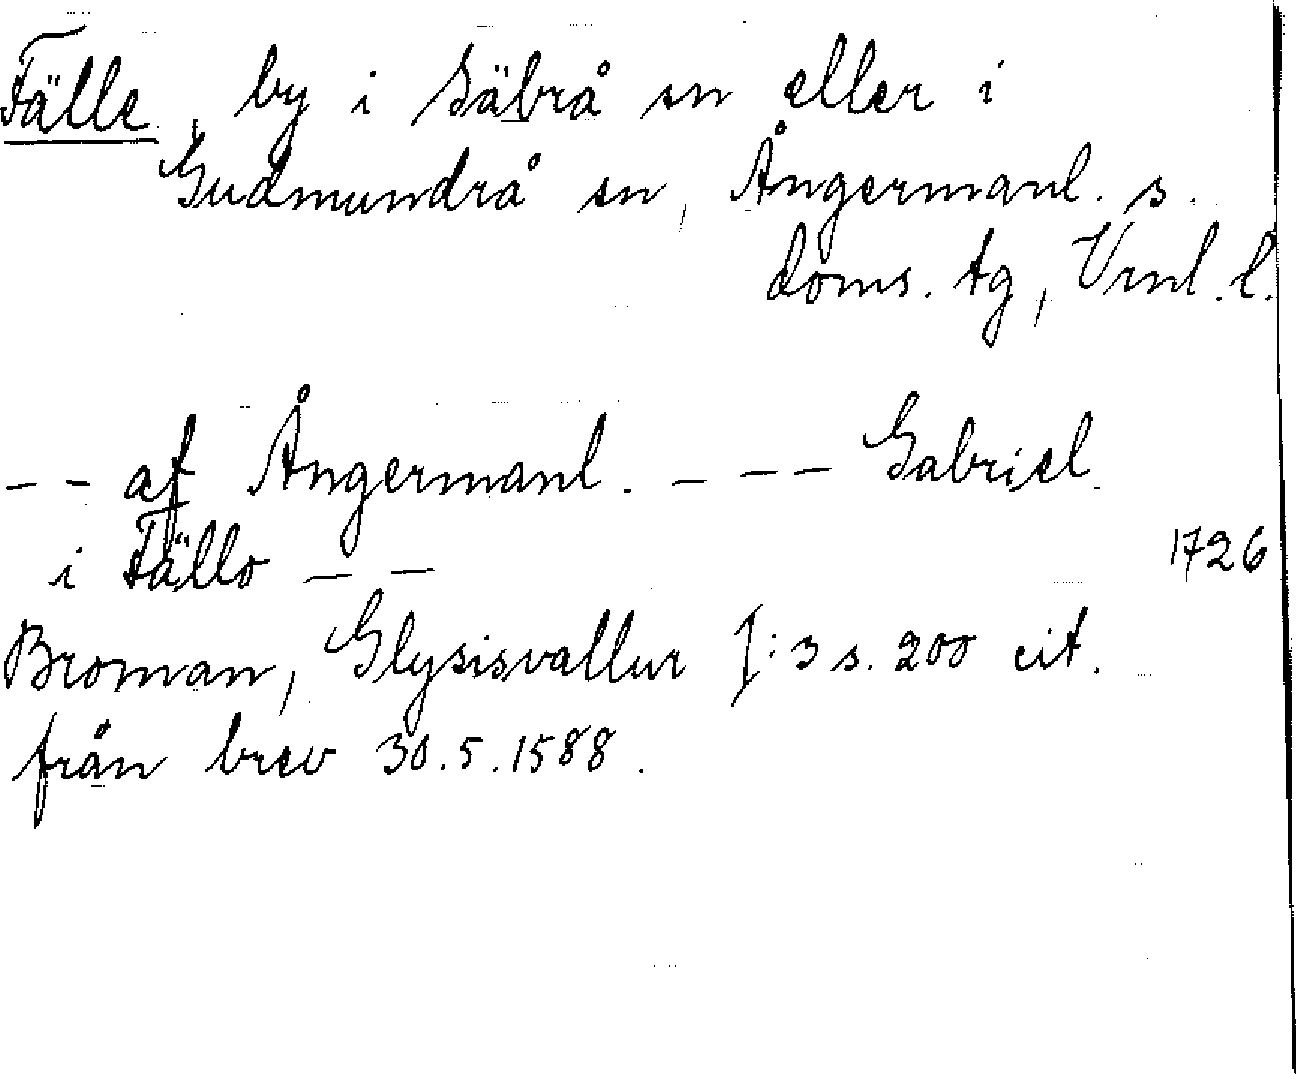 Fälle, by i Säbrå sn eller i
Gudmundrå sn, Ångermanl. s.
doms. tg, Vrnl. l.
-- af Ångermanl. --- Gabriel
i Fällo -- 1726
Broman, Glysisvallur I:3 s. 200 cit.
från brev 30.5.1588.